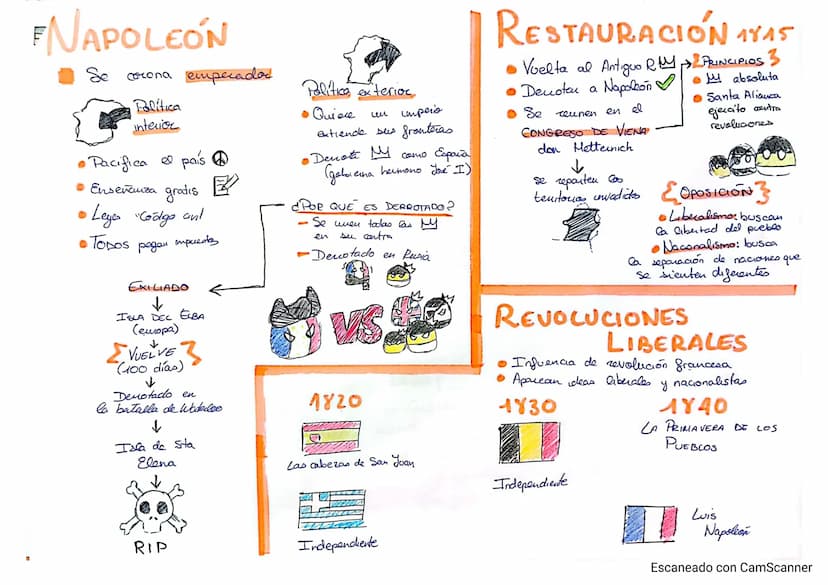 NAPOLEÓN
Se corona emperador
Política
interior
Pacifica el país
Enseñanza gratis
Leyes "Código civil
TODOS pagan impuestos
Política exterior
Quiere un imperio
extiende sus fronteras
Derrota como España
(gobierna hermano José I)
¿POR QUÉ ES DERROTADO?
Se unen todas las
en su contra
Derrotado en Rusia
VS
EXILIADO
ISLA DEL ELBA
(europa)
{ VUELVE }
(100 días)
Derrotado en
la batalla de Waterloo
Isla de Sta
Elena
RIP
RESTAURACIÓN 1815
Vuelta al Antiguo R
Derrotan a Napoleón
Se reunen en el
CONGRESO DE VIENA
don Metternich
se reparten los
territorios invadidos
{ PRINCIPIOS }
absoluta
Santa Alianza
ejercito contra
revoluciones
{ OPOSICIÓN }
Liberalismo: buscan
la libertad del pueblo
Nacionalismo: busca
la separación de naciones que
se sienten diferentes
REVOLUCIONES
LIBERALES
Influencia de revolución francesa
Aparecen ideas liberales y nacionalistas
1820
Las cabezas de San Juan
Independiente
1830
Independiente
1840
LA PRIMAVERA DE LOS
PUEBLOS
Luis
Napoleón
Escaneado con CamScanner